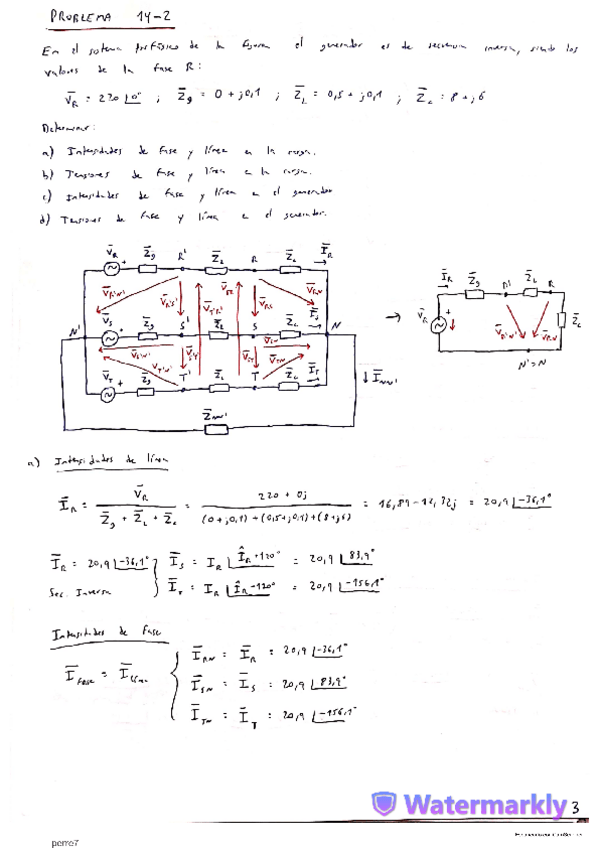 PROBLEMA 14-2
En el sistema trifásico de la figura el generador es de secuencia inversa, siendo los
valores de la fase R:
V̄R = 220 |0° ; Z̄g = 0 + j0,1 ; Z̄L = 0,5 + j0,1 ; Z̄c = 8 + j6
Determinar:
a) Intensidades de fase y línea en la carga.
b) Tensiones de fase y línea en la carga.
c) Intensidades de fase y línea en el generador
d) Tensiones de fase y línea en el generador.
V̄R Z̄g R' Z̄L R Z̄c ĪR
V̄R'N' V̄R'S' V̄T'R' V̄TR V̄RS V̄RN
N' V̄S Z̄g S' Z̄L S Z̄c N
V̄S'N' V̄T'N' V̄S'T' V̄ST V̄SN V̄TN
V̄T Z̄g T' Z̄L T Z̄c ĪT
Z̄NN' ĪNN'
ĪR Z̄g R' Z̄L R
V̄R V̄R'N' V̄RN Z̄c
N'=N
a) Intensidades de línea
ĪR = V̄R / (Z̄g + Z̄L + Z̄c) = (220 + 0j) / ((0+j0,1)+(0,5+j0,1)+(8+j6)) = 16,89-12,32j = 20,9 |-36,1°
ĪR = 20,9 |-36,1° ĪS = IR |ÎR+120° = 20,9 |83,9°
Sec. Inversa ĪT = IR |ÎR-120° = 20,9 |-156,1°
Intensidades de Fase
Īfase = Īlínea
ĪRN = ĪR = 20,9 |-36,1°
ĪSN = ĪS = 20,9 |83,9°
ĪTN = ĪT = 20,9 |-156,1°
Watermarkly
3
perre7